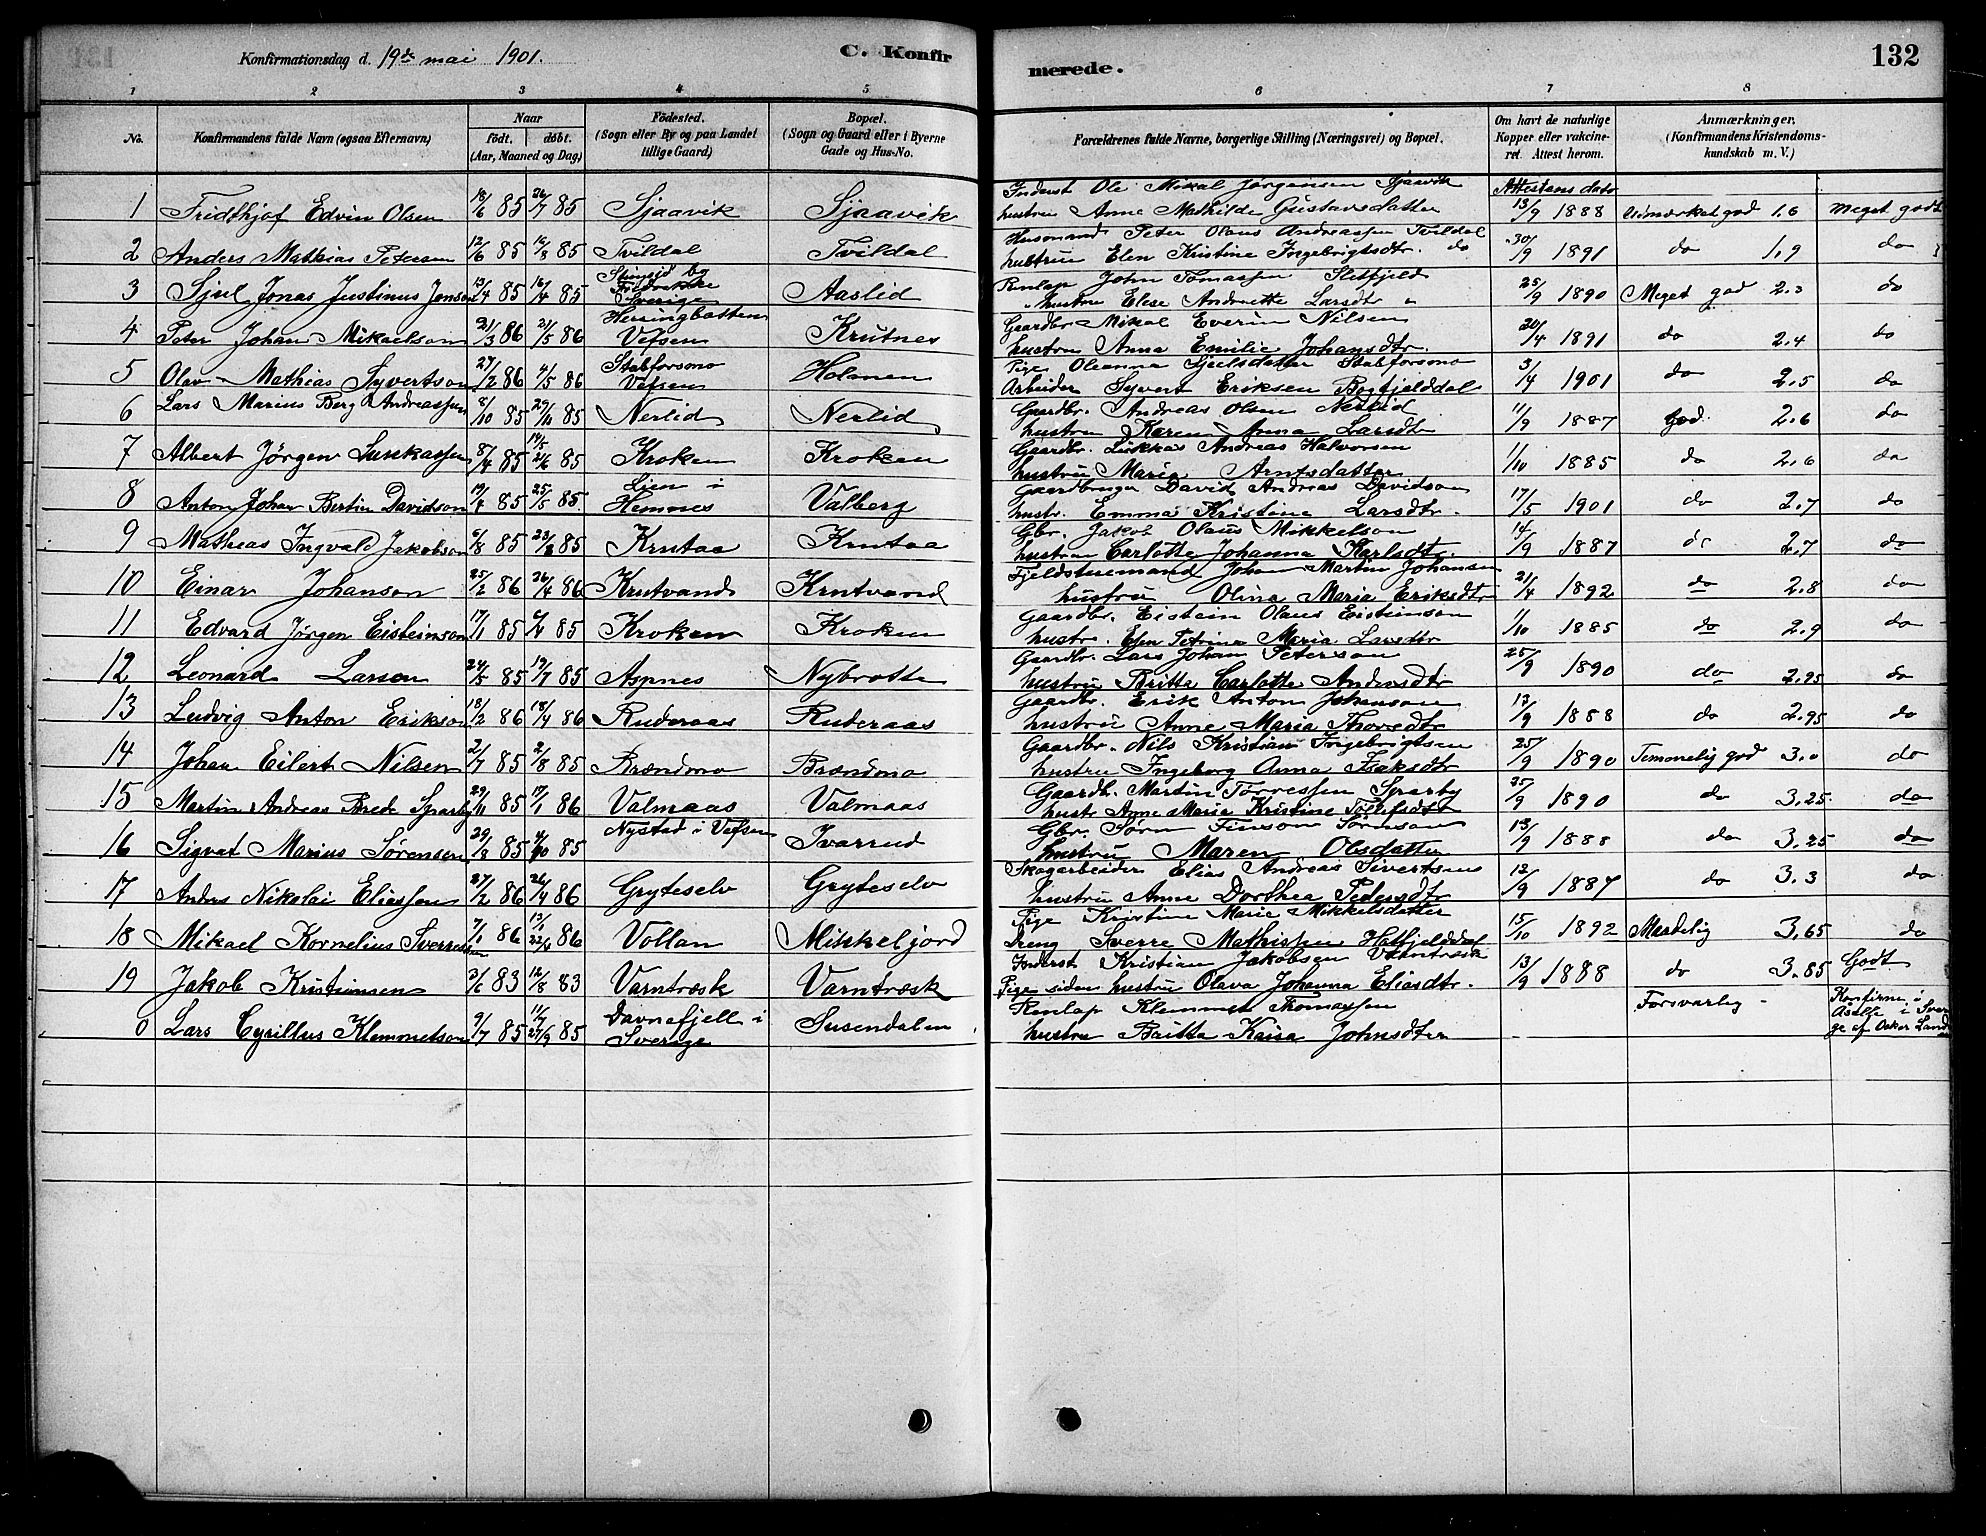 Konfirmationsdag d. 19de mai 1901.
C. Konfirmerede.
132
1 2 3 4 5 6 7 8
No.
Konfirmandens fulde Navn (egsaa Efternavn)
Naar
födt. döbt.
(Aar, Maaned og Dag)
Födested.
(Sogn eller By og paa Landet
tillige Gaard)
Bopæl.
(Sogn og Gaard eller i Byerne
Gade og Hus-No.
Forældrenes fulde Navne, borgerlige Stilling (Næringsvei) og Bopæl.
Om havt de naturlige
Kopper eller vakcine-
ret. Attest herom.
Anmærkninger.
(Konfirmandens Kristendoms-
kundskab m. V.)
Attestans dato
1 Fridthjof Edvin Olsen 18/6 85 26/7 85 Sjaavik Sjaavik Inderst Ole Mikal Jørgensen Sjaavik
hustru Anne Mathilde Gustavsdatter 13/9 1888 Udmærket god 1.6 Meget godt
2 Anders Mathias Petersen 12/6 85 16/8 85 Tvildal Tvildal Husmand Peter Olaus Andreassen Tvildal
hustru Elen Kristine Ingebrigtsdtr. do 30/9 1891 do 1.9 do
3 Sjul Jonas Justinus Jonsen 13/4 85 16/4 85 Sverige Aaslid Renlap John Tomassen Sletfjeld
hustru Elese Andreette Larsdtr 25/9 1890 Meget god 2.3 do
4 Peter Johan Mikaelson 21/3 86 21/5 86 Herringbotten
Vefsen Krutnes Gaardbr. Mikal Everin Nilsen
hustru Anna Emilie Johansdtr. 20/4 1891 do 2.4 do
5 Olav Mathias Syvertson 27/2 86 4/5 86 Stabforsmo
Vefsen Holmen Pige Oleanna Sjulsdatter Stabforsmo
Arbeider Syvert Eriksen Bogfjelddal 3/4 1901 do 2.5 do
6 Lars Marius Berg Andreassen 8/10 85 29/11 85 Nerlid Nerlid Gaardbr. Andreas Olsen Nerlid
hustru Karen Anna Larsdtr 11/9 1887 god. 2.6 do
7 Albert Jörgen Lukkassen 8/4 85 19/5 21/6 85 Kroken Kroken Gaardbr. Lukkas Andreas Halvorsen
hustru Maria Arntsdatter 1/10 1885 do 2.6 do
8 Anton Johan Bertin Davidson 19/4 85 25/5 85. Lien i
Hemnes Valberg Gaardbruger David Andreas Davidson
hustr. Emma Kristine Larsdtr. 17/5 1901 do 2.7 do
9 Mathias Ingvald Jakobson 6/8 85 23/8 85 Krutaa Krutaa Gbr. Jakob Olaus Mikkelson
hustru Carlotte Johanna Karlsdtr. 14/9 1887 do 2.7 do
10 Einar Johanson 25/2 86 26/4 86 Krutvand Krutvand Fjeldstuemand Johan Martin Johansen
hustru Olina Maria Eriksdtr 21/4 1892 do 2.8 do
11 Edvard Jørgen Eisteinson 17/1 85 6/4 85 Kroken Kroken Gaardbr. Eistein Olaus Eisteinson
hustr. Elen Petrine Maria Larsdtr 1/10 1885 do 2.9 do
12 Leonard Larson 24/5 85 19/7 85 Aspnes Nybrotte Gaardbr. Lars Johan Peterson
hustru Britta Carlotte Andersdtr 25/9 1890 do 2.95 do
13 Ludvig Anton Erikson 13/2 86 18/4 86 Ruderaas Ruderaas Gaardbr. Erik Anton Johanson
hustru Anne Maria Thoresdtr 13/9 1888 do 2.95 do
14 Johan Eilert Nilsen 2/7 85 2/8 85 Brændmo Brændmo Gaardbr. Nils Kristian Ingebrigtsen
hustru Ingeborg Anna Isaksdtr 25/9 1890 Temmelig god 3.0 do
15 Martin Andreas Brede Sparby 29/11 85 17/1 86 Valmaas Valmaas Gaardb. Martin Torressen Sparby
hustr Anne Maria Kristine Tollefsdtr 25/9 1890 do 3.25 do
16 Sigvat Marius Sørensen 29/8 85 4/10 85 Nystad i Vefsen Ivarrud Gbr. Sørn Finson Sørnson
hustru Maren Olsdatter 13/9 1888 do 3.25 do
17 Anders Nikolai Eliassen 27/2 86 26/4 86 Gryteselv Gryteselv Skogarbeider Elias Andreas Sivertsen
hustru Anne Dorthea Pedersdtr 12/9 1887 do 3.3 do
18 Mikael Kornelius Sverressen 7/1 86 13/1 22/4 86 Vollan Mikkeljord Pige Kristine Marie Mikkelsdatter
Dreng Sverre Mathissen Hatfjelddal 15/10 1892 Maadelig 3.65 do
19 Jakob Kristiansen 3/6 83 12/8 83 Varntræsk Varntræsk Inderst Kristian Jakobsen Varntræsk
Pige siden hustru Olava Johanna Eliasdtr. 13/9 1888 do 3.85 Godt
0 Lars Cyrillus Klemmetson 9/7 85 11/7 27/9 85 Davnefjell i
Sverige Susendalen Renlap Klemmet Thomassen
hustru Britta Kaisa Johnsdtr Forsvarlig - Konfirm. i
Åsele i Sver-
ge af Oskar